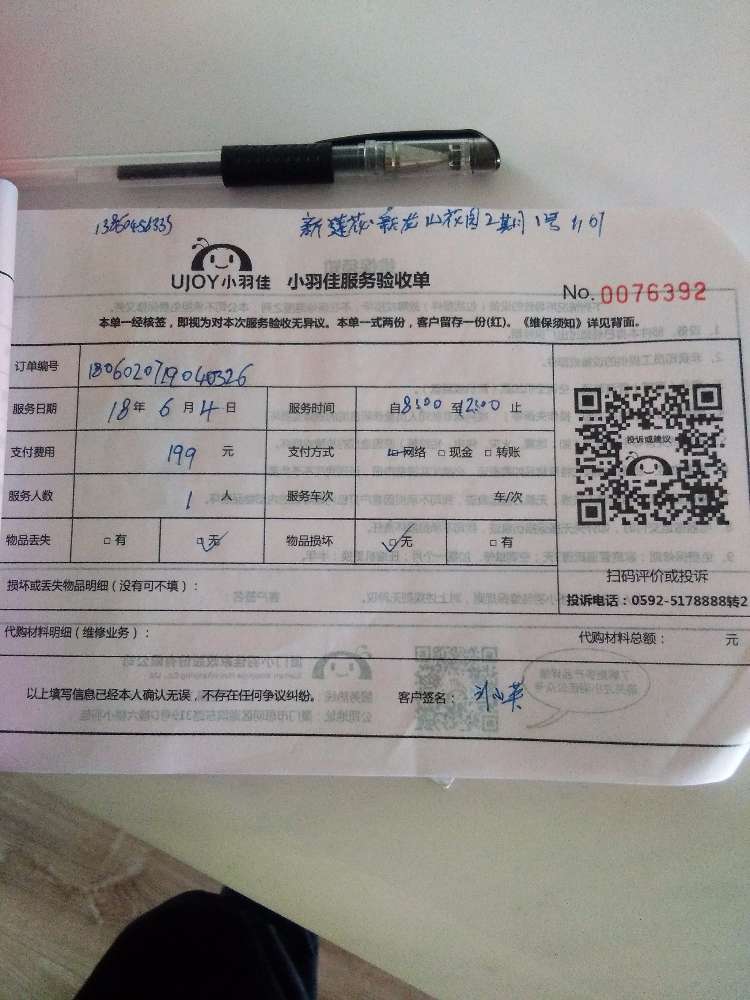 13860456333
UJOY小羽佳 小羽佳服务验收单
No. 0076392
本单一经核签，即视为对本次服务验收无异议。本单一式两份，客户留存一份(红)。《维保须知》详见背面。
订单编号 1806020719040326
服务日期 18年 6月 4日 服务时间 自8:00 至12:00 止
支付费用 199 元 支付方式 网络 □ 现金 □ 转账
服务人数 1 人 服务车次 车/次
物品丢失 □ 有 □ 无 物品损坏 □ 无 □ 有
投诉或建议
扫码评价或投诉
投诉电话：0592-5178888转2
损坏或丢失物品明细（没有可不填）：
代购材料明细（维修业务）： 代购材料总额： 元
以上填写信息已经本人确认无误，不存在任何争议纠纷。 客户签名：